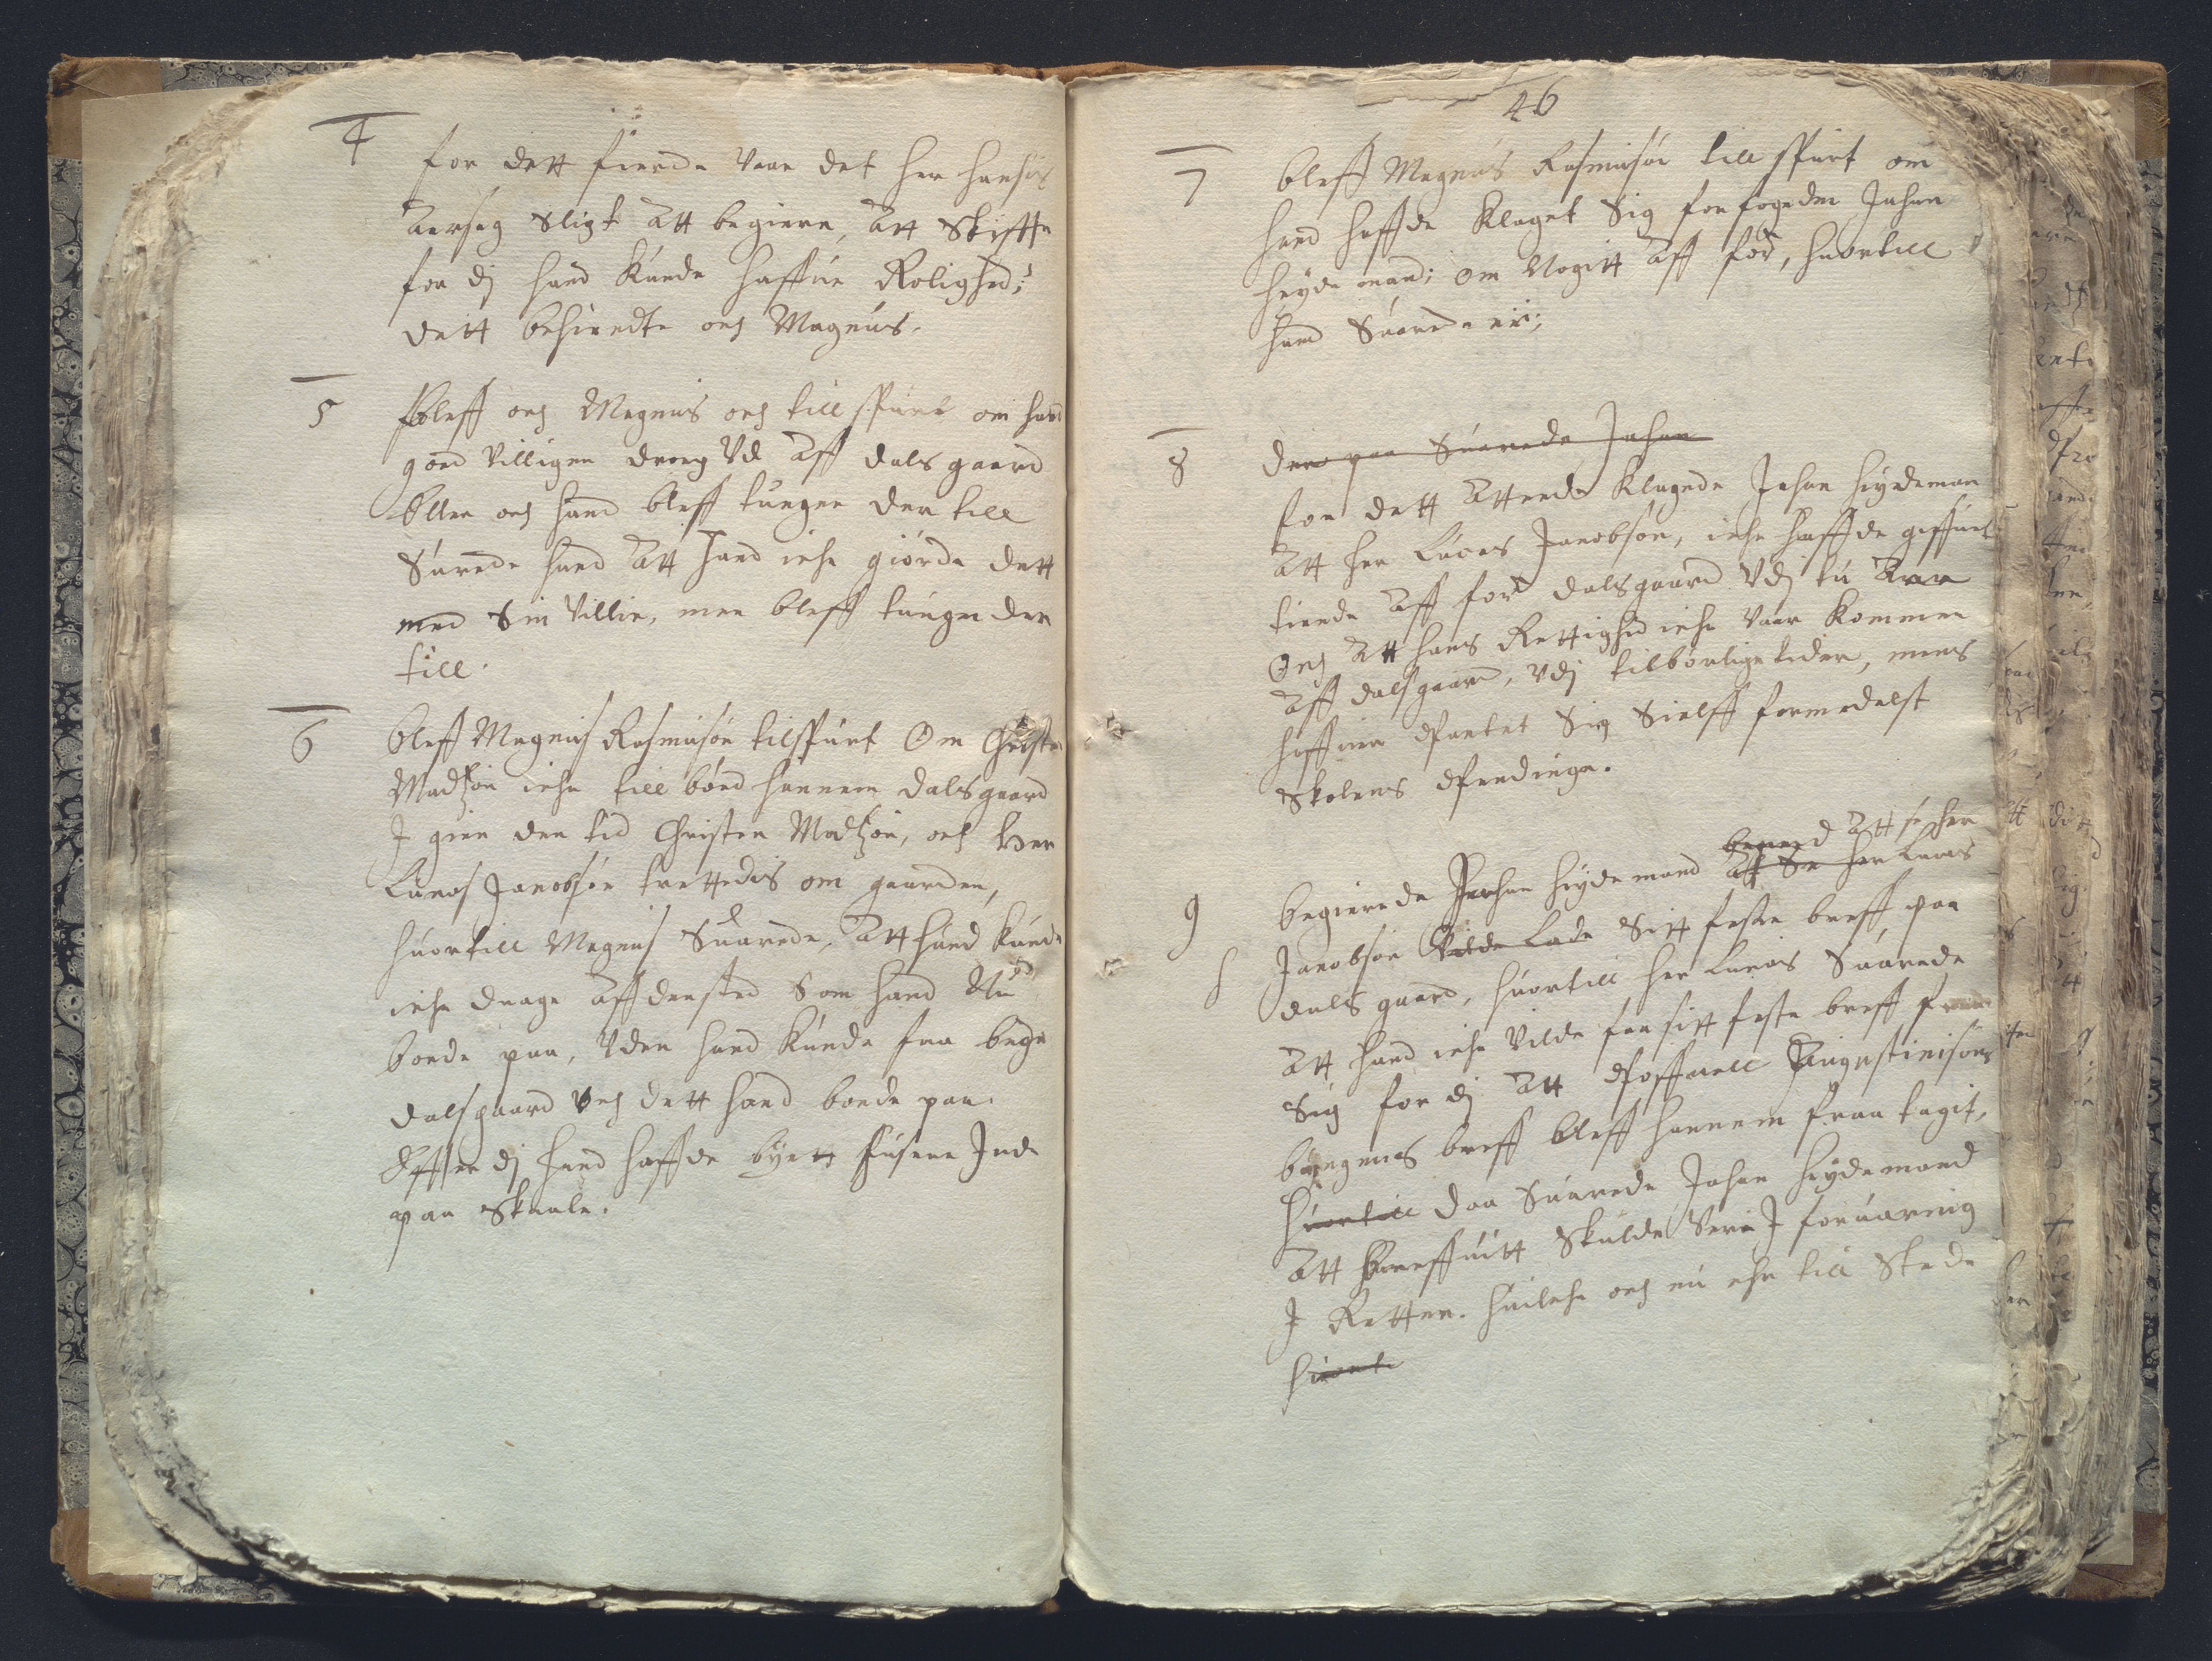 4
for dett fierde Vaar det her hansis
Aarsag Sligt Att begiere, Att Skiffte
for dj hand Kunde haffue Rolighed;
dett behiredte och Magnus.
5
Bleff och Magnus och till spurt om hand
goed Villigen droeg Vd Aff dals gaard
Eller och hand bleff tungen der till
Suarede hand Att hand iche giorde dett
med Sin Villie, men bleff tungen der
till.
6
Bleff Magnus Rasmuson tilspurt Om Christen
Madtzøn iche till bød hannem dalsgaard
J gien den tid Christen Madtzøn, och Her
Lucas Jacobsøn trettedis om gaarden,
huortill Magnus Suarede, Att hand kunde
iche drage Aff dersted Som hand Nu
boede paa, Vden hand Kunde faa bege
dalsgaard och dett hand boede paa.
Effter dj hand haffde byett husene Jnd
paa Skaale.
46
7
Bleff Magnus Rasmusøn till spurt om
hand haffde Klaget Sig for fogeden Johan
heyde mand; om Nogitt Aff for, huortill
hand Suarede nei;
8
der paa Suarede Johan
for dett Attende Klagede Johan heydeman
Att her Lucas Jacobsøn, iche haffde giffuet
tiende Aff for dalsgaard Vdj tu Aar
Och Att hans Rettighed iche Vaar Kommen
Aff dalsgaard, Vdj tilbørlige tider, mens
haffuer Pantet Sig Sielff formedelst
Skolens Pendinge.
9
begierede Johan heyde mand begierd Att se her
Att Se her Lucas
Jacobsøn Vilde Lade Sitt feste breff, paa
dals gaard, huortill her Lucas Suarede
Att hand iche Vilde faa sitt feste breff fraa
Sig for dj Att Poffuell Augustinisøns
bøgens breff bleff hannem fraa tagit,
huortill daa Suarede Johan heydemand
Att breffuitt Skulde Vere J foruaring
J Retten. huilche och nu ehr till Stede
huort